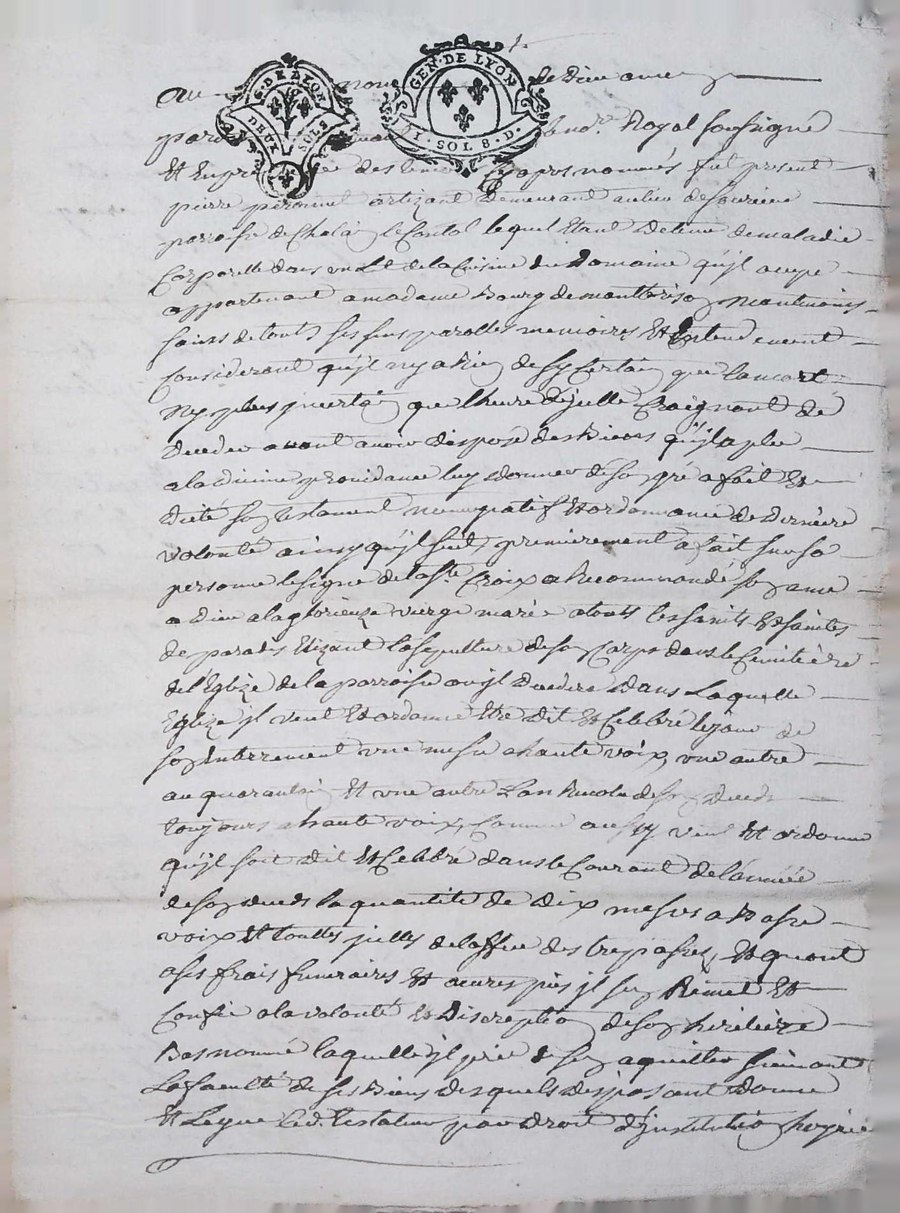 G. DE LYON
DEUX SOLS
GEN. DE LYON
1. SOL 8. D.
Au nom de Dieu amen
par Royal soussigné
Et En presence des temoins Cy apres nommés fut present
pierre artizant Demeurant au lieu de
parroisse de le Contal lequel Etant Detenu de maladie
Corporelle dans un Lit de la Cuisine du Domaine qu'jl occupe
appartenant a madame Bourg de neantmoins
sains de touts ses sens parolles memoires Et Entendement
Considerant qu'jl ny a Rien de sy Certain que la mort
Ny plus jncertain que l'heure d'jcelle Craignant de
Deceder avant avoir disposé des Biens qu'jl a plu
a la divine providance luy donner de son gré a fait Et
Dicté son testament nuncupatif Et ordonnance de Derniere
volonté ainsy qu'jl suit, premierement a fait sur sa
personne le signe de la ste Croix a Recommandé son ame
a Dieu a la glorieuze vierge marie a touts les saints Et saintes
de paradis Elizant la sepulture de son Corps dans le Cimitiere
de l'Eglize de la parroisse ou jl decedera Dans Laquelle
Eglize jl veut Et ordonne Etre dit Et Celebré le jour de
son Enterrement une messe a haute voix, une autre
au quarantin Et une autre L'an Revolu de son Deceds
toujours a haute voix, Comme aussy veut Et ordonne
qu'jl soit dit Et Celebré dans le Courant de l'année
de son deceds la quantité de dix messes a Basse
voix Et touttes jcelles de l'office des trepassés, Et quant
a ses frais funeraires Et œuvres pies jl s'en Remet Et
Confie a la volonté Et Discreption de son heritiere
Bas nommé laquelle jl prie de s'en aquitter suivant
La faculté de ses Biens Desquels disposant donne
Et Legue Led. testateur par droit d'jnstitution